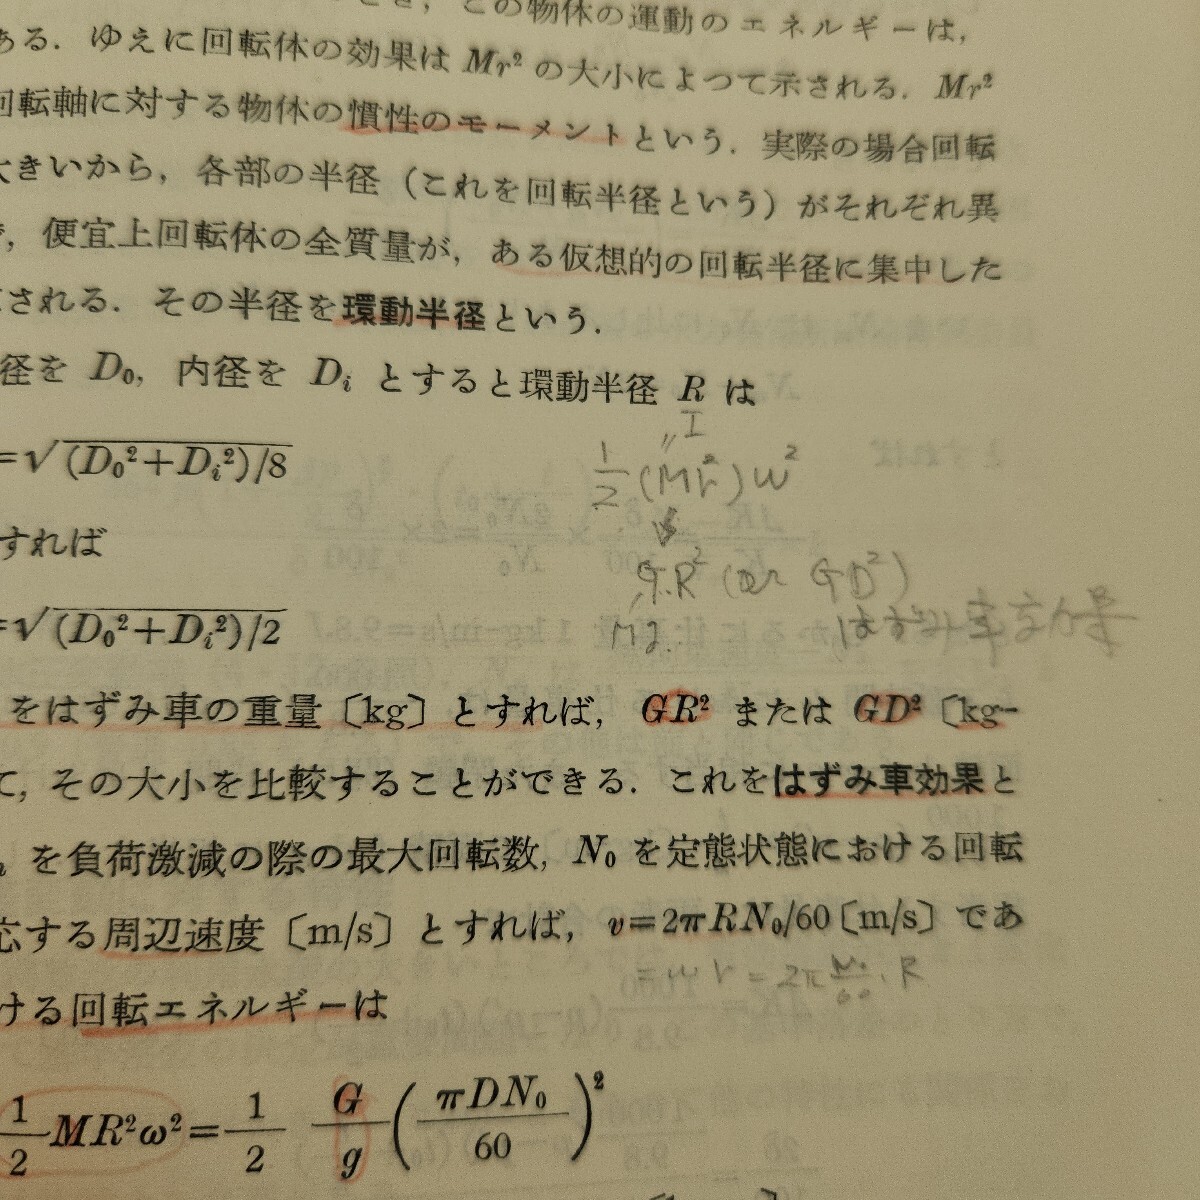 この物体の運動のエネルギーは,
ある. ゆえに回転体の効果は Mr² の大小によつて示される. Mr²
回転軸に対する物体の慣性のモーメントという. 実際の場合回転
大きいから, 各部の半径（これを回転半径という）がそれぞれ異
便宜上回転体の全質量が, ある仮想的の回転半径に集中した
される. その半径を環動半径という.
径を D₀, 内径を Dᵢ とすると環動半径 R は
I
=√(D₀²+Dᵢ²)/8
1/2 (Mr²) ω²
すれば
GR² (or GD²)
=√(D₀²+Dᵢ²)/2
Mg. はずみ車効果
をはずみ車の重量〔kg〕とすれば, GR² または GD²〔kg-
て, その大小を比較することができる. これをはずみ車効果と
を負荷激減の際の最大回転数, N₀ を定態状態における回転
応する周辺速度〔m/s〕とすれば, v=2πRN₀/60〔m/s〕であ
=ωr = 2π N₀/60 · R
ける回転エネルギーは
1/2 MR²ω² = 1/2 G/g (πDN₀/60)²